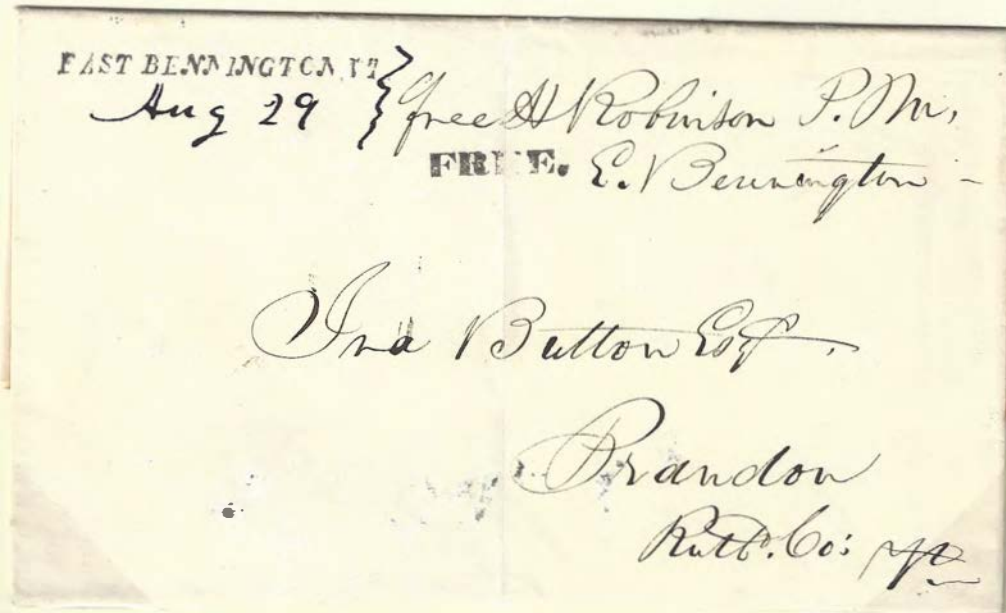 EAST BENNINGTON, VT
Aug 29 } free H Robinson P.M.,
FREE. E. Bennington -
Ira Button Esq.
Brandon
Rutd. Co: Vt